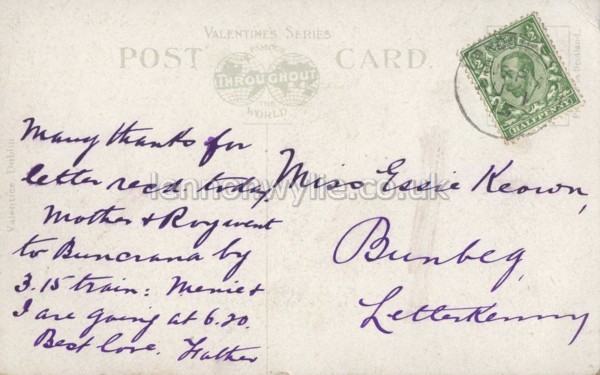 VALENTINES SERIES
POST CARD.
FAMOUS
THROUGHOUT
THE
WORLD
HALFPENNY
Valentine Dublin
lennonwylie.co.uk
Many thanks for
letter recd today
Mother & Roy went
to Buncrana by
3.15 train: Menie &
I are going at 6.20.
Best love. Father
Miss Essie Keown,
Bunbeg,
Letterkenny